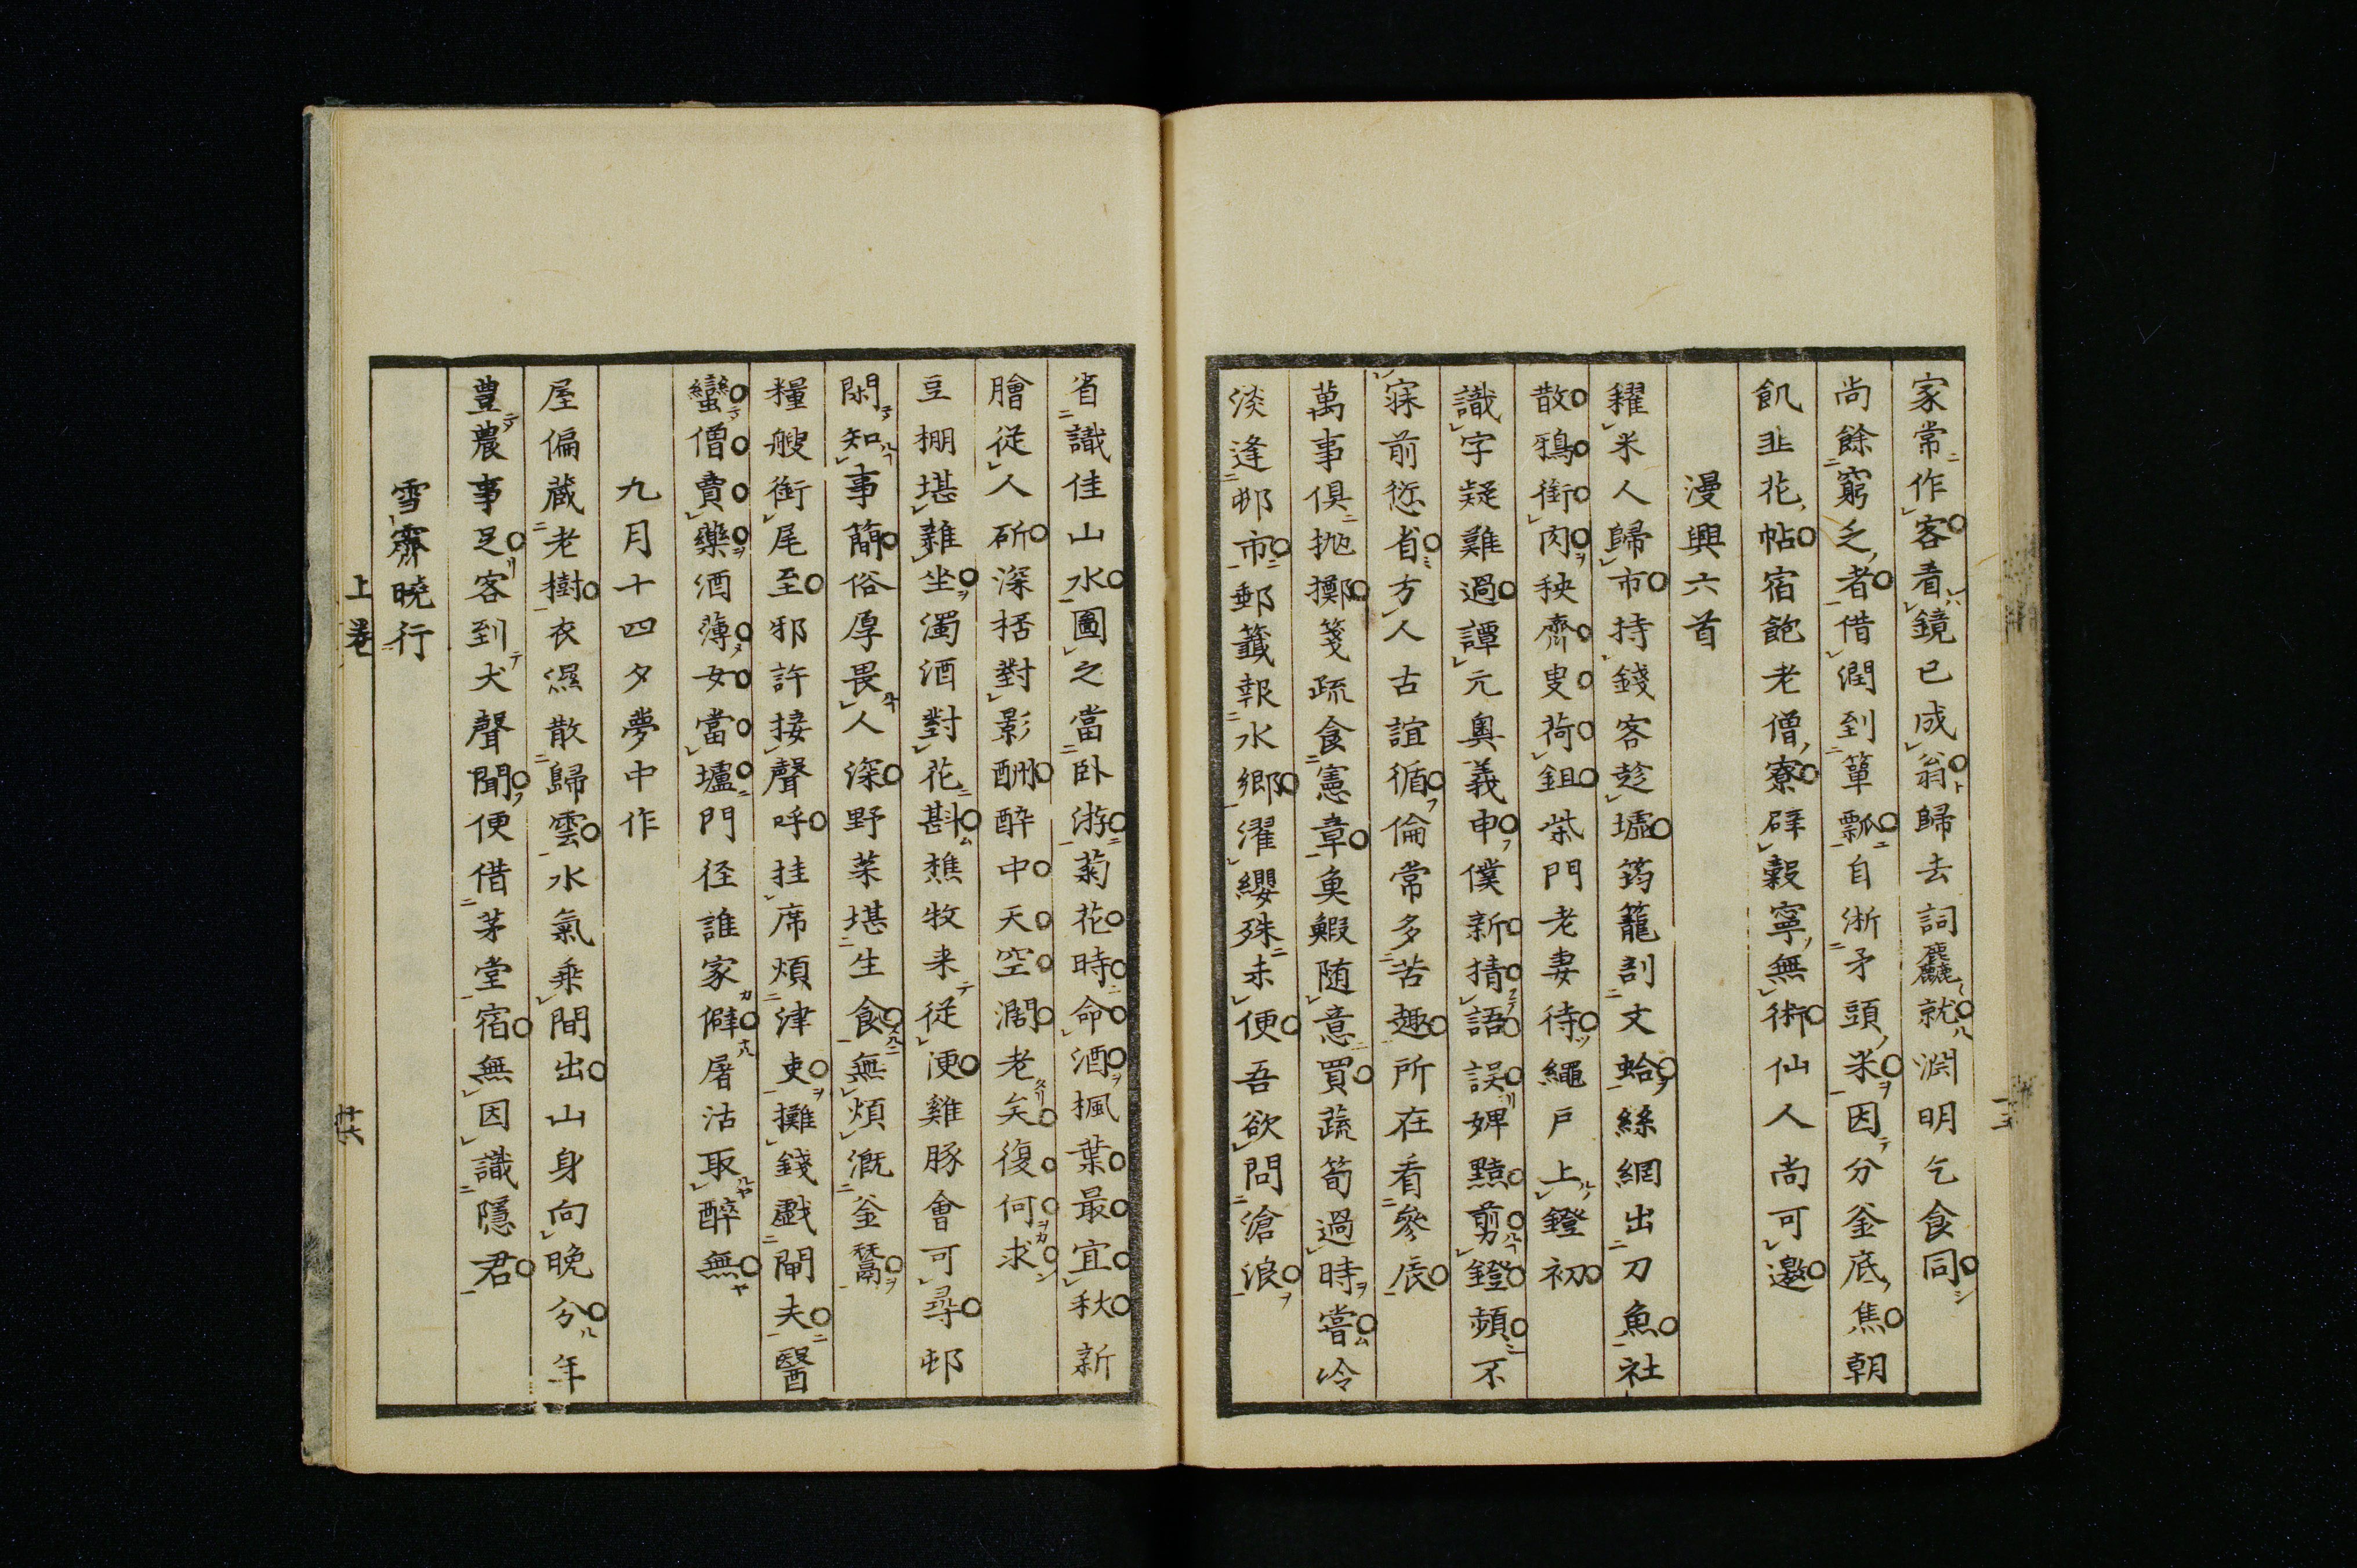 家常作客看鏡已成翁歸去詞麤就淵明乞食同
尚餘窮乏者借潤到簞瓢自淅矛頭米因分釜底焦朝
飢韭花帖宿飽老僧寮辟穀寧無術仙人尚可邀
漫興六首
糴米人歸市持錢客趁墟筠籠剖文蛤絲網出刀魚社
散鴉銜肉秧齊叟荷鉏柴門老妻待繩戶上鐙初
識字疑難過譚元奧義申僕新猜語誤婢黠剪鐙頻不
寐前愆省方人古誼循倫常多苦趣所在看參辰
萬事俱拋擲箋疏食憲章魚鰕随意買蔬筍過時嘗冷
淡逢邨市郵籤報水鄉濯纓殊未便吾欲問滄浪
省識佳山水圖之當卧游菊花時命酒楓葉最宜秋新
膾從人斫深桮對影酬醉中天空濶老矣復何求
豆棚堪雜坐濁酒對花斟樵牧来從便雞豚會可尋邨
閑知事簡俗厚畏人深野菜堪生食無煩漑釜鬵
糧艘銜尾至邪許接聲呼挂席煩津吏攤錢戲閘夫醫
蠻僧賣藥酒薄女當壚門径誰家僻屠沽取醉無
九月十四夕夢中作
屋偏藏老樹衣濕散歸雲水氣乘間出山身向晚分年
豊農事足客到犬聲聞便借茅堂宿無因識隱君
雪霽曉行
上巻
廿六